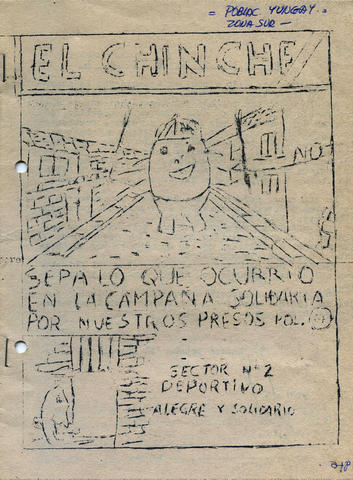 = POBLAC YUNGAY. =
ZONA SUR —
EL CHINCHE
NO
SEPA LO QUE OCURRIO
EN LA CAMPAÑA SOLIDARIA
POR NUESTROS PRESOS POL.
SECTOR Nº 2
DEPORTIVO
ALEGRE Y SOLIDARIO